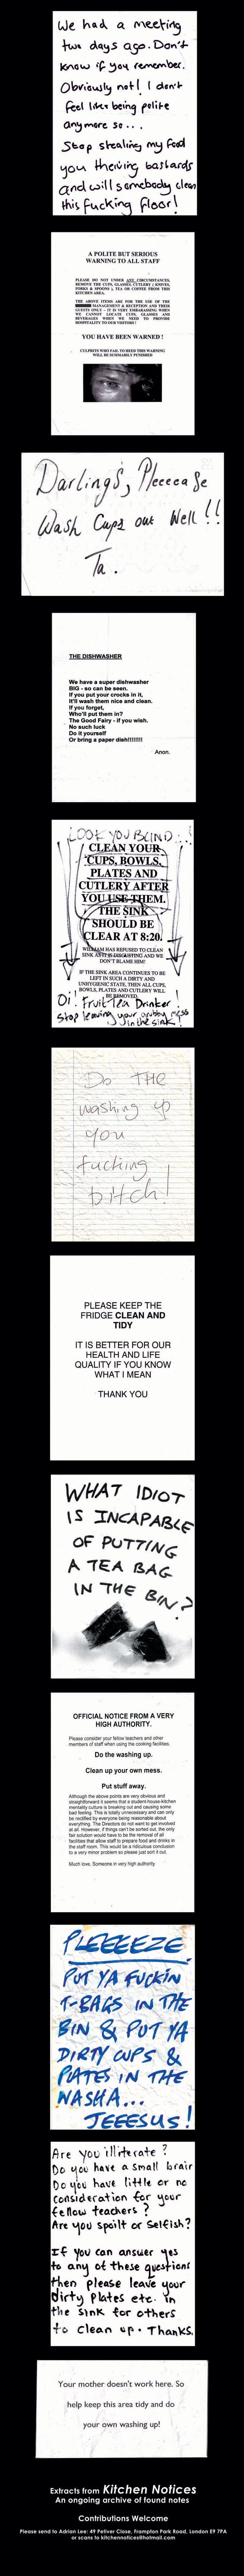 We had a meeting
two days ago. Don't
know if you remember.
Obviously not! I don't
feel like being polite
anymore so...
Stop stealing my food
you thieving bastards
and will somebody clean
this fucking floor!
A POLITE BUT SERIOUS
WARNING TO ALL STAFF
PLEASE DO NOT UNDER ANY CIRCUMSTANCES,
REMOVE THE CUPS, GLASSES, CUTLERY ( KNIVES,
FORKS & SPOONS ), TEA OR COFFEE FROM THIS
KITCHEN AREA.
THE ABOVE ITEMS ARE FOR THE USE OF THE
MANAGEMENT & RECEPTION AND THEIR
GUESTS ONLY - IT IS VERY EMBARASSING WHEN
WE CANNOT LOCATE CUPS, GLASSES AND
BEVERAGES WHEN WE NEED TO PROVIDE
HOSPITALITY TO OUR VISITORS !
YOU HAVE BEEN WARNED !
CULPRITS WHO FAIL TO HEED THIS WARNING
WILL BE SUMMARILY PUNISHED
Darling's, Pleeeease
Wash Cups out Well!!
Ta.
THE DISHWASHER
We have a super dishwasher
BIG - so can be seen.
If you put your crocks in it,
It'll wash them nice and clean.
If you forget,
Who'll put them in?
The Good Fairy - if you wish.
No such luck
Do it yourself
Or bring a paper dish!!!!!!!!
Anon.
LOOK YOU BLIND..
CLEAN YOUR
CUPS, BOWLS,
PLATES AND
CUTLERY AFTER
YOU USE THEM.
THE SINK
SHOULD BE
CLEAR AT 8:20.
WILLIAM HAS REFUSED TO CLEAN
SINK AS IT IS DISGUSTING AND WE
DON'T BLAME HIM!
IF THE SINK AREA CONTINUES TO BE
LEFT IN SUCH A DIRTY AND
UNHYGENIC STATE, THEN ALL CUPS,
BOWLS, PLATES AND CUTLERY WILL
BE REMOVED.
Oi! Fruit Tea Drinker
Stop leaving your grubby mess
in the sink!
Do THE
washing up
you
fucking
bitch!
PLEASE KEEP THE
FRIDGE CLEAN AND
TIDY
IT IS BETTER FOR OUR
HEALTH AND LIFE
QUALITY IF YOU KNOW
WHAT I MEAN
THANK YOU
WHAT IDIOT
IS INCAPABLE
OF PUTTING
A TEA BAG
IN THE BIN?
OFFICIAL NOTICE FROM A VERY
HIGH AUTHORITY.
Please consider your fellow teachers and other
members of staff when using the cooking facilities.
Do the washing up.
Clean up your own mess.
Put stuff away.
Although the above points are very obvious and
straightforward it seems that a student-house-kitchen
mentality culture is breaking out and causing some
bad feeling. This is totally unnecessary and can only
be rectified by everyone being reasonable about
everything. The Directors do not want to get involved
at all. However, if things can't be sorted out, the only
fair solution would have to be the removal of all
facilities that allow staff to prepare food and drinks in
the staff room. This would be a ridiculous conclusion
to a very minor problem so please just sort it out.
Much love, Someone in very high authority.
PLEEEEZE
PUT YA FUCKIN
T-BAGS IN THE
BIN & PUT YA
DIRTY CUPS &
PLATES IN THE
WASHA...
JEEESUS!
Are you illiterate ?
Do you have a small brain
Do you have little or no
consideration for your
fellow teachers ?
Are you spoilt or selfish?
If you can answer yes
to any of these questions
then please leave your
dirty plates etc. in
the sink for others
to clean up. Thanks.
Your mother doesn't work here. So
help keep this area tidy and do
your own washing up!
Extracts from Kitchen Notices
An ongoing archive of found notes
Contributions Welcome
Please send to Adrian Lee: 49 Petiver Close, Frampton Park Road, London E9 7PA
or scans to kitchennotices@hotmail.com